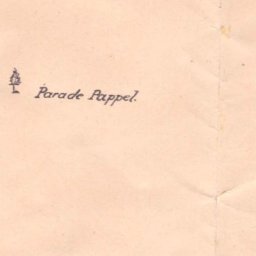 Parade Pappel.